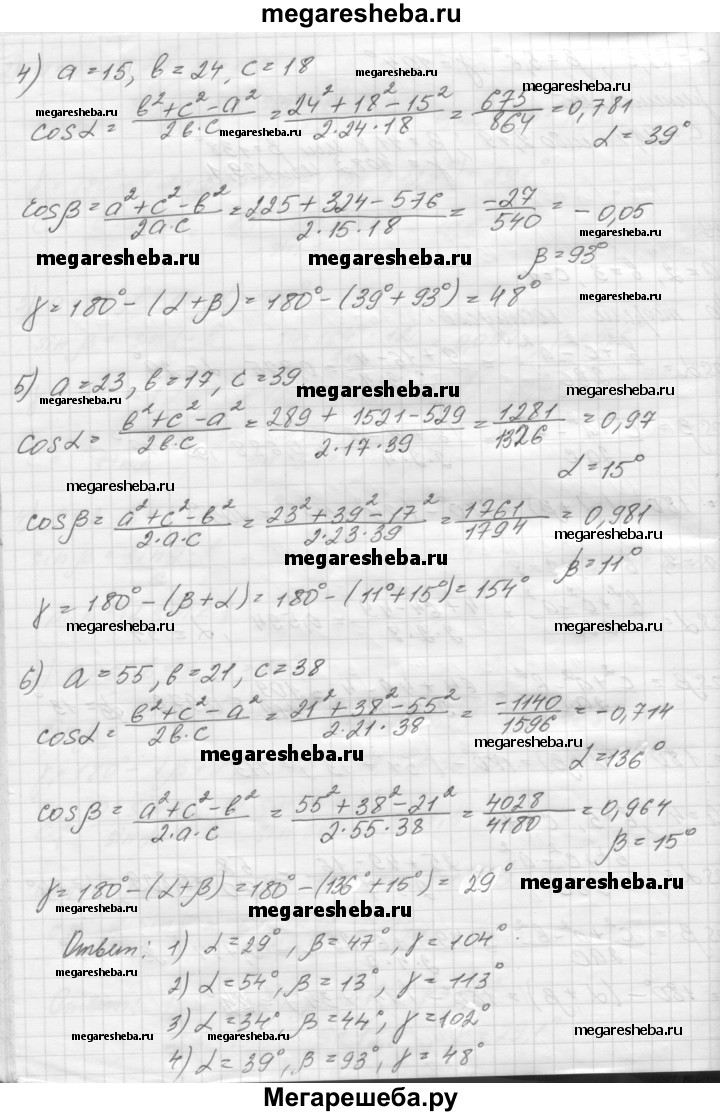 megaresheba.ru
4) a=15, в=24, с=18
cosα = (в²+с²-a²)/(2в·с) = (24²+18²-15²)/(2·24·18) = 675/864 = 0,781
α = 39°
megaresheba.ru megaresheba.ru megaresheba.ru
cosβ = (a²+c²-в²)/(2a·c) = (225+324-576)/(2·15·18) = -27/540 = -0,05
β = 93°
megaresheba.ru megaresheba.ru
γ = 180° - (α+β) = 180° - (39°+93°) = 48°
megaresheba.ru
5) a=23, в=17, с=39
megaresheba.ru megaresheba.ru megaresheba.ru
cosα = (в²+с²-a²)/(2в·с) = (289+1521-529)/(2·17·39) = 1281/1326 = 0,97
α = 15°
megaresheba.ru megaresheba.ru
cosβ = (a²+c²-в²)/(2·a·c) = (23²+39²-17²)/(2·23·39) = 1761/1794 = 0,981
megaresheba.ru megaresheba.ru
β = 11°
γ = 180° - (β+α) = 180° - (11°+15°) = 154°
megaresheba.ru megaresheba.ru
6) a=55, в=21, с=38
cosα = (в²+с²-a²)/(2в·с) = (21²+38²-55²)/(2·21·38) = -1140/1596 = -0,714
megaresheba.ru megaresheba.ru
α = 136°
cosβ = (a²+c²-в²)/(2·a·c) = (55²+38²-21²)/(2·55·38) = 4028/4180 = 0,964
β = 15°
γ = 180° - (α+β) = 180° - (136°+15°) = 29°
megaresheba.ru
megaresheba.ru megaresheba.ru
Ответ: 1) α=29°, β=47°, γ=104°.
megaresheba.ru
2) α=54°, β=13°, γ=113°
3) α=34°, β=44°, γ=102°
megaresheba.ru megaresheba.ru
4) α=39°, β=93°, γ=48°
megaresheba.ru
Мегарешеба.ру